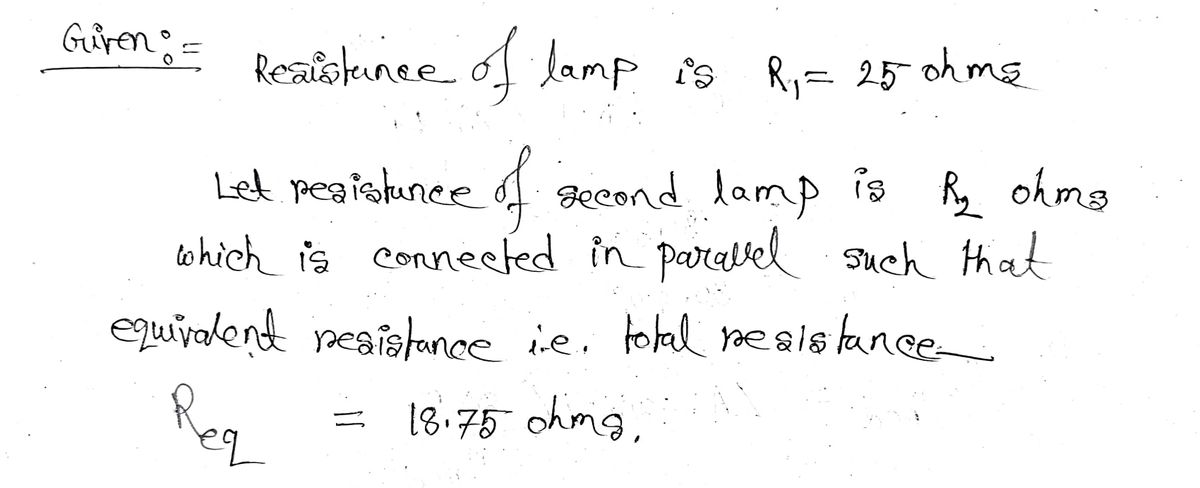 Given :=
Resistance of lamp is R₁ = 25 ohms
Let resistance of second lamp is R₂ ohms
which is connected in parallel such that
equivalent resistance i.e. total resistance
Req = 18.75 ohms.